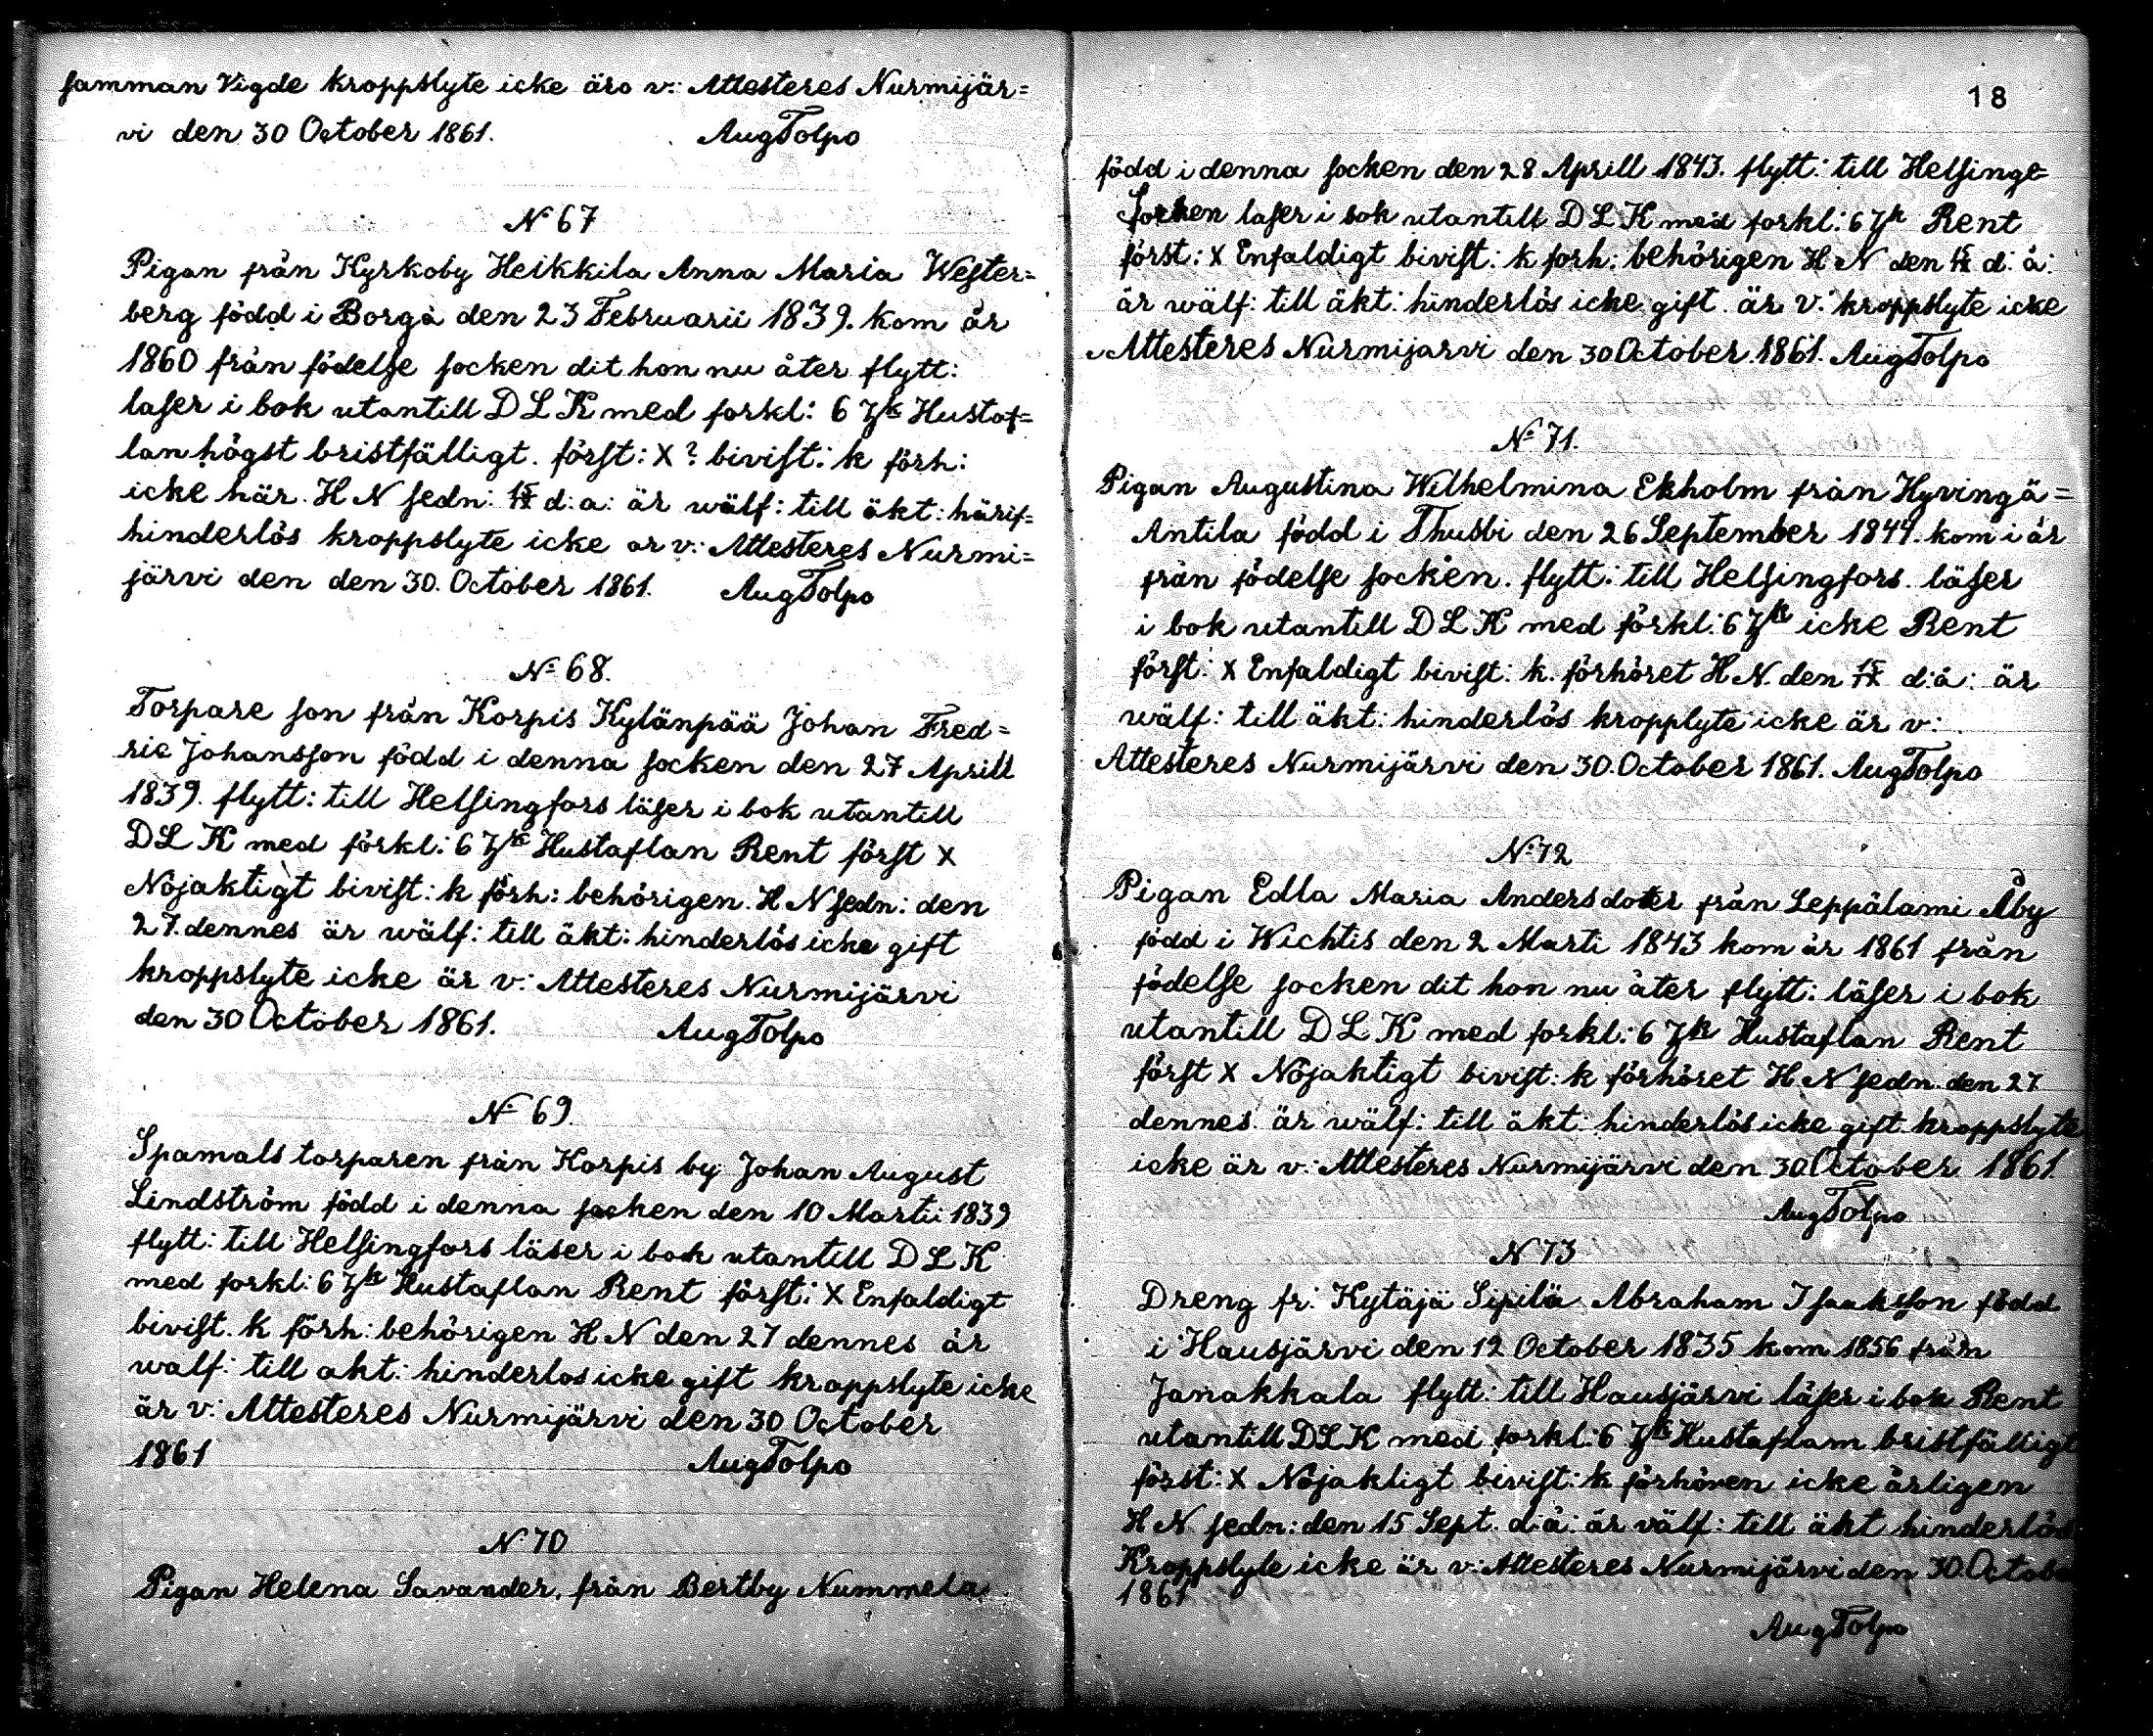 samman Vigde kroppslyte icke äro v: Attesteres Nurmijär=
vi den 30 October 1861. AugTolpo
No 67
Pigan från Kyrkoby Heikkila Anna Maria Wester=
berg född i Borgå den 23 Februarii 1839. kom år
1860 från födelse socken dit hon nu åter flytt:
laser i bok utantill D L K med forkl: 6 Hustaf=
lan högst bristfälligt. först: X? bivist: k förh:
icke här. H N sedn: d: a: är wälf: till äkt: härif=
hinderlös kroppslyte icke ar v: Attesteres Nurmi=
järvi den den 30. October 1861. AugTolpo
No 68.
Torpare son från Korpis Kylänpää Johan Fred=
ric Johansson född i denna socken den 27 Aprill
1839. flytt: till Helsingfors läser i bok utantill
D L K med förkl: 6 Hustaflan Rent först X
Nöjaktigt bivist: k förh: behörigen. H N sedn: den
27. dennes är wälf: till äkt: hinderlös icke gift
kroppslyte icke är v: Attesteres Nurmijärvi
den 30 October 1861. AugTolpo
No 69.
Spamals torparen från Korpis by Johan August
Lindström född i denna socken den 10 Martii 1839
flytt: till Helsingfors läser i bok utantill D L K
med forkl: 6 Hustaflan Rent först: X Enfaldigt
bivist. k förh: behörigen H N den 27 dennes är
walf: till akt: hinderlos icke gift kroppslyte icke
är v: Attesteres Nurmijärvi den 30 October
1861 AugTolpo
No 70
Pigan Helena Savander, från Bertby Nummela
18
född i denna socken den 28 Aprill 1843. flytt: till Helsinge
Socken laser i bok utantill D L K med forkl: 6 Rent
först: X Enfaldigt bivist: k forh: behörigen H N den d: å:
är wälf: till äkt: hinderlös icke gift är v: kroppslyte icke
Attesteres Nurmijarvi den 30 October 1861. AugTolpo
No 71.
Pigan Augustina Wilhelmina Ekholm från Hyvingä=
Antila född i Thusbi den 26 September 1844. kom i år
från födelse socken. flytt: till Helsingfors. läser
i bok utantill D L K med förkl: 6 icke Rent
först: X Enfaldigt bivist: k. förhöret H N. den d: å: är
wälf: till äkt: hinderlös kropplyte icke är v:
Attesteres Nurmijärvi den 30. October 1861. AugTolpo
No 72
Pigan Edla Maria Andersdoter från Leppälami Åby
född i Wichtis den 2 Marti 1843 kom år 1861 från
födelse socken dit hon nu åter flytt: läser i bok
utantill D L K med forkl: 6 Hustaflan Rent
först X Nöjaktigt bivist: k förhöret H N sedn. den 27
dennes är wälf: till äkt: hinderlös icke gift kroppslyte
icke är v: Attesteres Nurmijärvi den 30 October 1861.
AugTolpo
N 73
Dreng fr: Kytäjä Sipilä Abraham Isaaksson född
i Hausjärvi den 12 October 1835 kom 1856 från
Janakkala flytt: till Hausjärvi läser i bok Rent
utantill D L K med forkl: 6 Hustaflam bristfälligt
först: X Nöjakligt bivist: k förhören icke årligen
H N. sedn: den 15 Sept. d: å: är välf: till äkt hinderlös
Kroppslyle icke är v: Attesteres Nurmijärvi den 30. Octobe
1861
AugTolpo